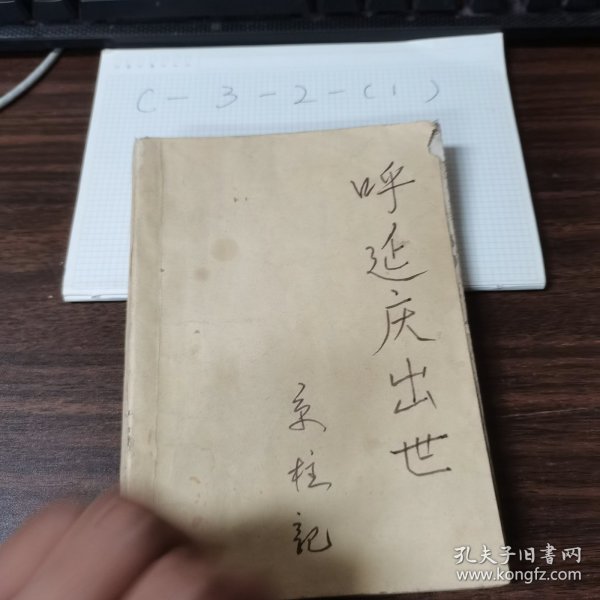 C-3-2-(1)
呼延庆出世
京柱記
孔夫子旧書网
www.kongfz.com